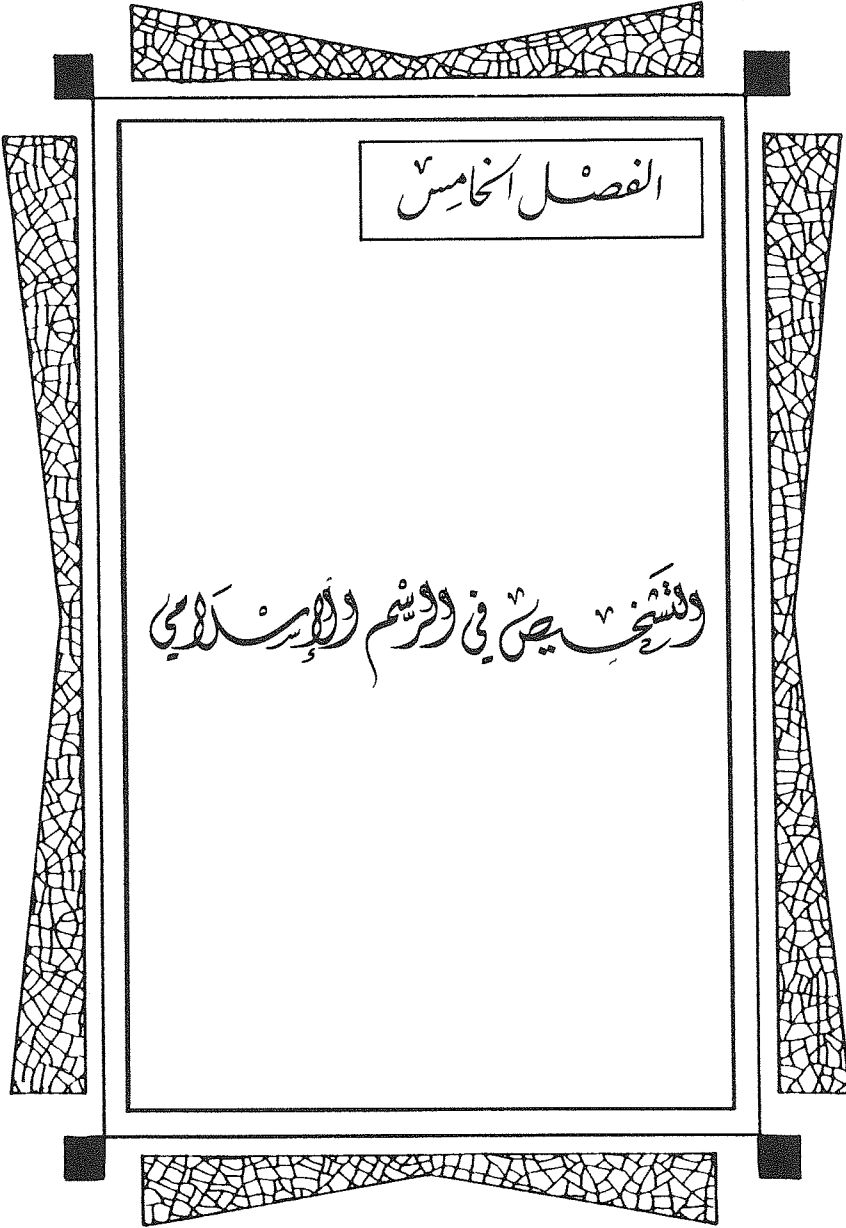 الفصل الخامس
التشخيص في الرسم الإسلامي